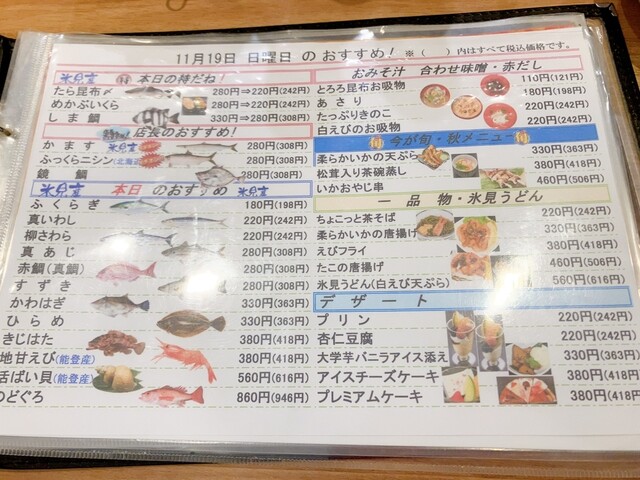 11月19日 日曜日 のおすすめ! ※( )内はすべて税込価格です。
氷見産 本日の特だね!
たら昆布〆 280円⇒220円(242円)
めかぶいくら 280円⇒220円(242円)
しま鯛 330円⇒280円(308円)
店長のおすすめ!
かます 280円(308円)
ふっくらニシン(北海道 280円(308円)
鏡鯛 280円(308円)
氷見産 本日のおすすめ 氷見産
ふくらぎ 180円(198円)
真いわし 220円(242円)
柳さわら 220円(242円)
真あじ 280円(308円)
赤鯛(真鯛) 280円(308円)
すずき 280円(308円)
かわはぎ 330円(363円)
ひらめ 330円(363円)
きじはた 380円(418円)
地甘えび(能登産) 380円(418円)
活ばい貝(能登産) 560円(616円)
のどぐろ 860円(946円)
おみそ汁 合わせ味噌・赤だし
とろろ昆布お吸物 110円(121円)
あさり 180円(198円)
たっぷりきのこ 220円(242円)
白えびのお吸物 220円(242円)
今が旬・秋メニュー
柔らかいかの天ぷら 330円(363円)
松茸入り茶碗蒸し 380円(418円)
いかおやじ串 460円(506円)
一品物・氷見うどん
ちょこっと茶そば 220円(242円)
柔らかいかの唐揚げ 330円(363円)
えびフライ 380円(418円)
たこの唐揚げ 460円(506円)
氷見うどん(白えび天ぷら) 560円(616円)
デザート
プリン 220円(242円)
杏仁豆腐 220円(242円)
大学芋バニラアイス添え 330円(363円)
アイスチーズケーキ 380円(418円)
プレミアムケーキ 380円(418円)